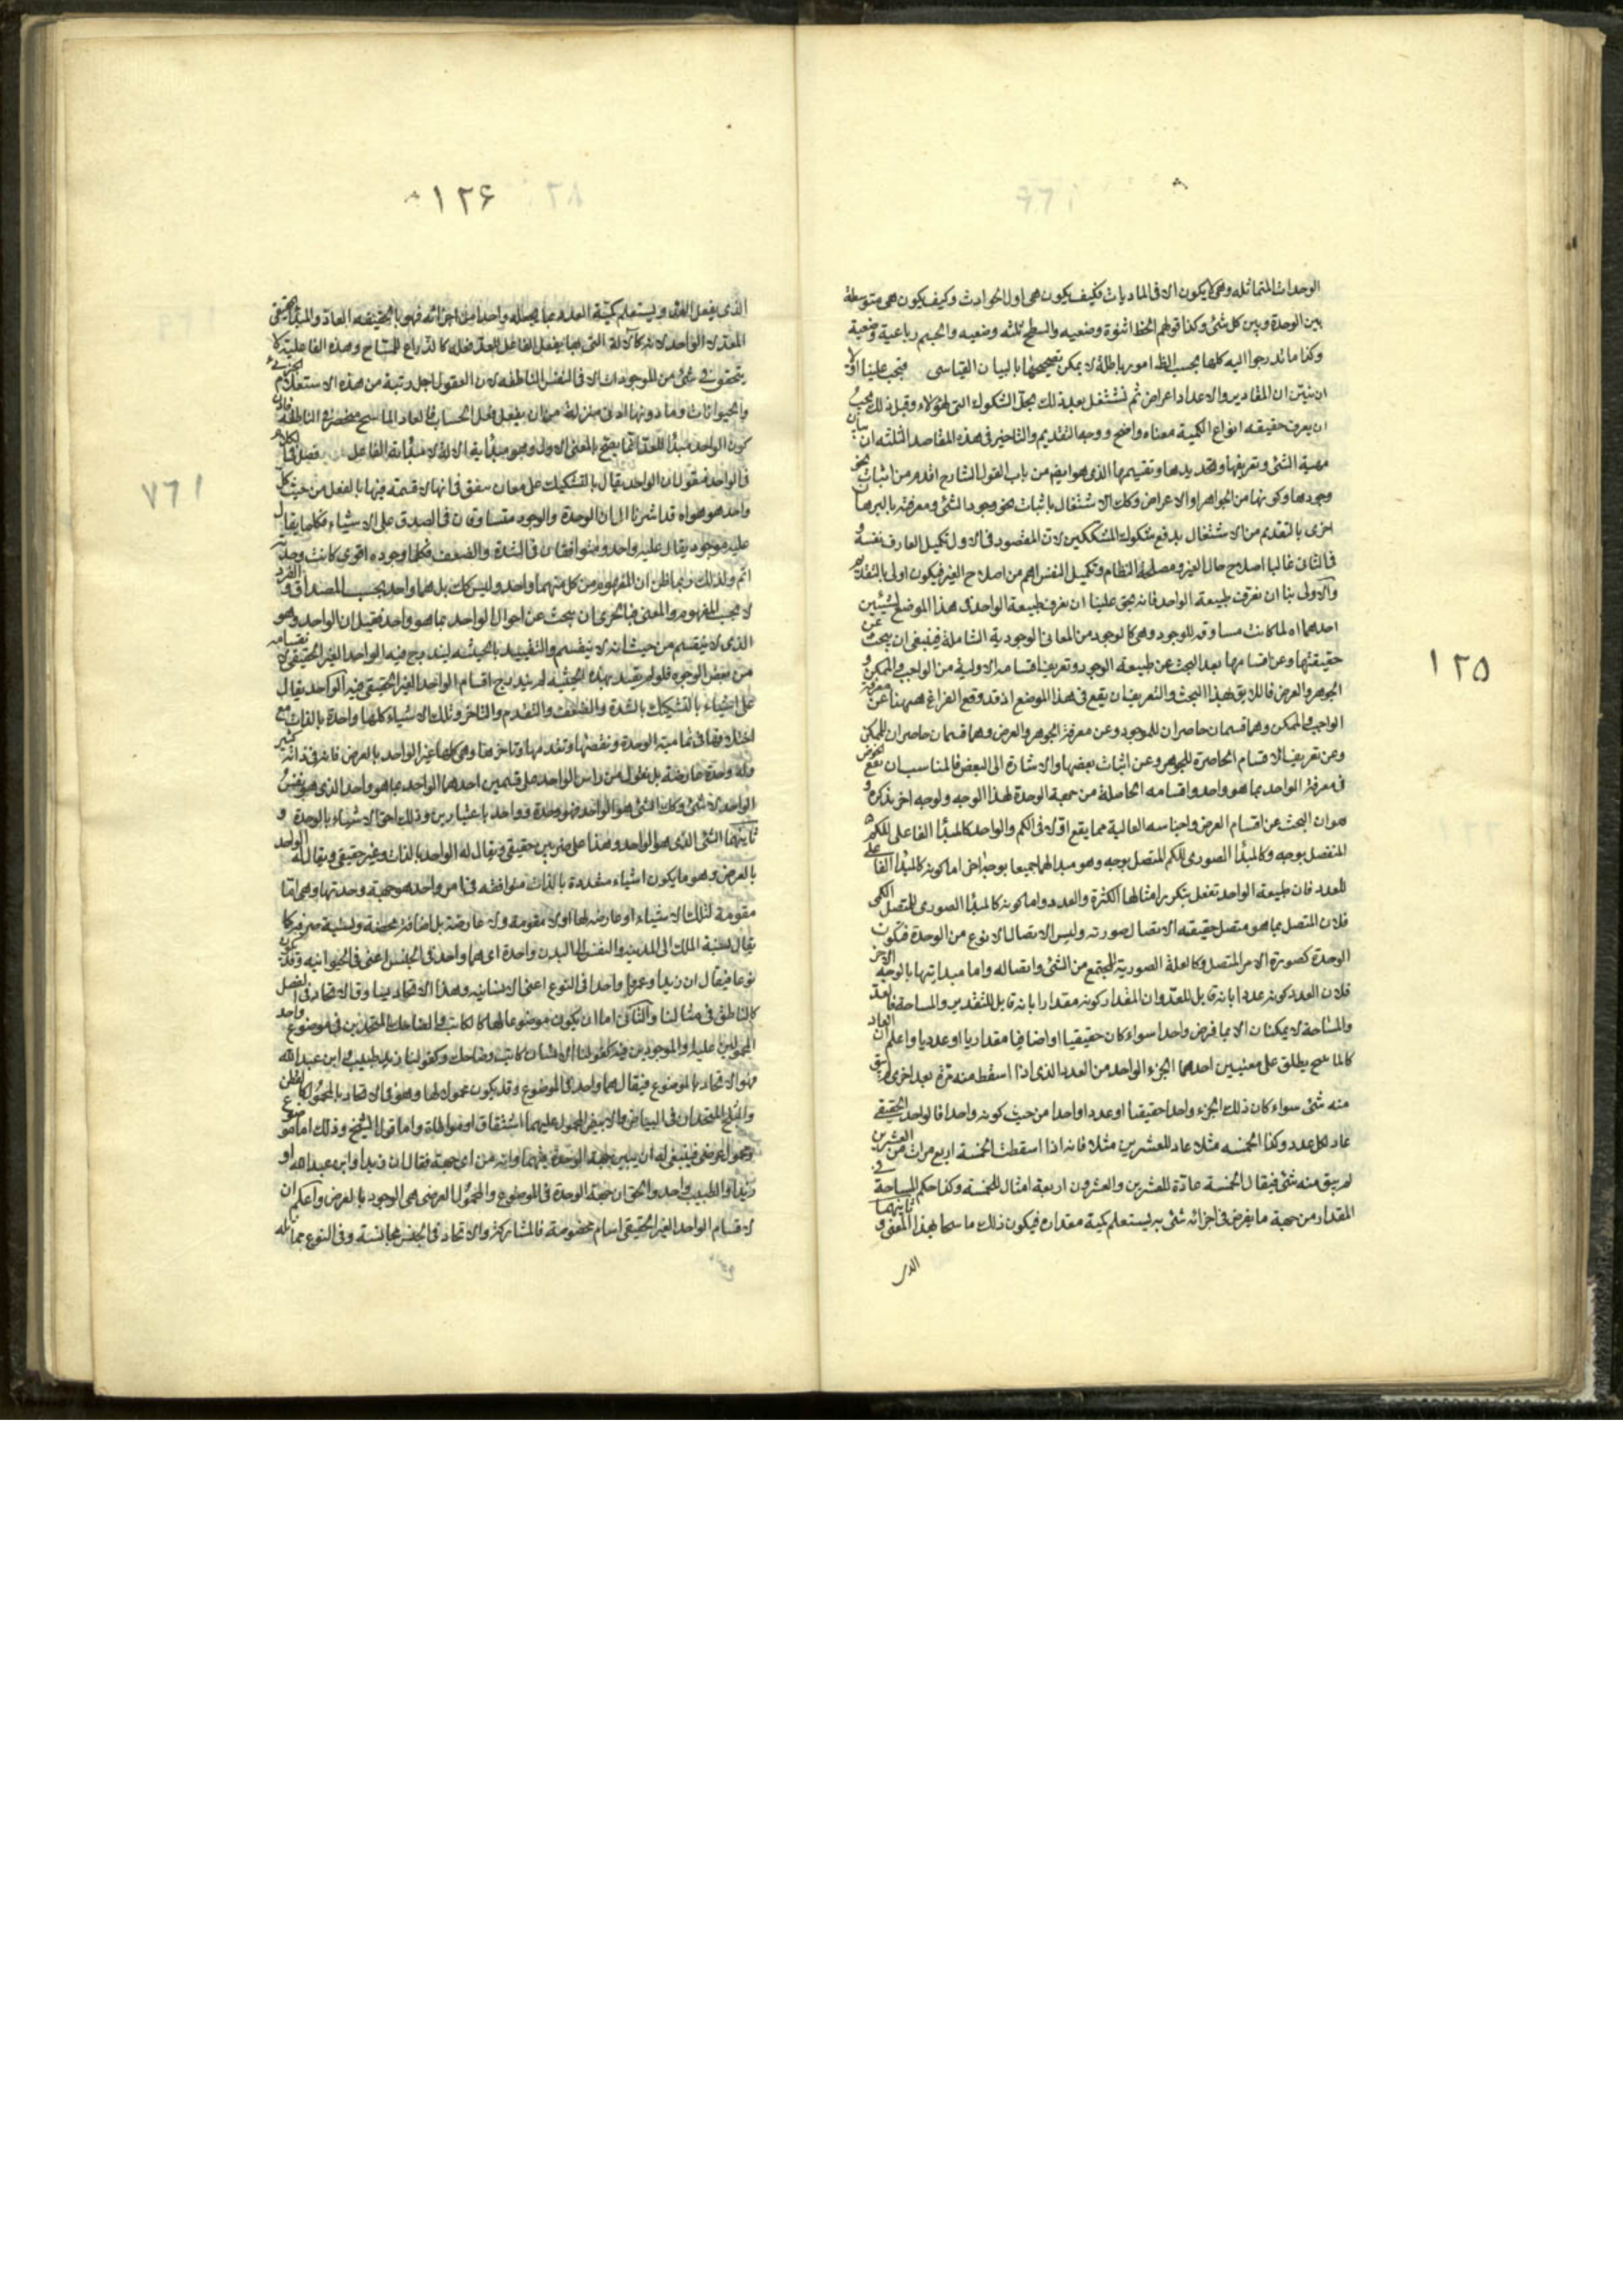 ۱۲۵
الوحدات المتماثله وهى لا يكون الا فى الماديات فكيف يكون هى اول الحوادث وكيف يكون هى متوسطة
بين الوحدة وبين كل شئ وكذا قولهم الخط اثنوة وضعيه والسطح ثلثه وضعيه والجسم رباعية وضعية
وكذا ما تدرجوا اليه كلها بحسب الظ امور باطلة لا يمكن تصحيحها بالبيان القياسى فيجب علينا اولا
ان نبين ان المقادير والاعداد اعراض ثم نشتغل بعد ذلك بحل الشكوك التى لهؤلاء وقبل ذلك يجب
ان يعرف حقيقه انواع الكمية معناه واضح ووجه التقديم والتاخير فى هذه المقاصد الثلثه ان بيان
مهية الشئ وتعريفها وتحديدها وتقسيمها الذى هو ايضم من باب القول الشارح اقدم من اثبات نحو
وجودها وكونها من الجواهر او الاعراض وكك الاشتغال باثبات نحو وجود الشئ ومعرفته بالبرهان
احرى بالتقديم من الاشتغال بدفع شكوك المشككين لان المقصود فى الاول تكميل العارف نفسه و
فى الثانى غالبا اصلاح حال الغير ومصلحة النظام وتكميل النفس اهم من اصلاح الغير فيكون اولى بالتقديم
والاولى بنا ان نعرف طبيعة الواحد فانه يحق علينا ان نعرف طبيعة الواحد فى هذا الموضع لشيئين
احدهما اه لما كانت مساوقه للوجود وهى كالوجود من المعانى الوجودية الشاملة فينبغى ان يبحث عن
حقيقتها وعن اقسامها بعد البحث عن طبيعة الوجود وتعريف اقسامه الاولية من الواجب والممكن و
الجوهر والعرض فاللايق بهذا البحث والتعريف ان يقع فى هذا الموضع اذ قد وقع الفراغ ههنا عن معرفة
الواجب والممكن وهما قسمان حاصران للموجود وعن معرفة الجوهر والعرض وهما قسمان حاصران للممكن
وعن تعريف الاقسام الحاصرة للجوهر وعن اثبات بعضها والاشارة الى البعض فالمناسب ان يقع الخوض
فى معرفة الواحد بما هو واحد واقسامه الحاصلة من جهة الوحدة لهذا الوجه ولوجه اخر يذكره و
هو ان البحث عن اقسام العرض واجناسه العالية مما يقع اولا فى الكم والواحد كالمبدأ الفاعلى للكم
المنفصل بوجه وكالمبدأ الصورى للكم المتصل بوجه وهو مبدا لهما جميعا بوجه اخر اما كونه كالمبدأ الفاعلى
للعدد فان طبيعة الواحد تفعل بتكرير امثالها الكثرة والعدد واما كونه كالمبدأ الصورى للمتصل الكمى
فلان المتصل بما هو متصل حقيقته الاتصال صورته وليس الاتصال الا نوع من الوحدة فيكون
الوحدة كصورة الامر المتصل وكالعلة الصورية للمجتمع من الشئ واتصاله واما مبدايتها بالوجه الاخر
فلان العدد كونه عددا بانه قابل للعد وان المقدار كونه مقدارا بانه قابل للتقدير والمساحة فالعد
والمساحة لا يمكنان الا بما فرض واحدا سواء كان حقيقيا او اضافيا مقداريا او عدديا واعلم ان العاد
كالماسح يطلق على معنيين احدهما الجزء الواحد من العدد الذى اذا اسقط منه مرة بعد اخرى لم يبق
منه شئ سواء كان ذلك الجزء واحدا حقيقيا او عددا واحدا من حيث كونه واحدا فالواحد الحقيقى
عاد لكل عدد وكذا الخمسه مثلا عاد للعشرين مثلا فانه اذا اسقطت الخمسة اربع مرات من العشرين
لم يبق منه شئ فيقال الخمسة عادة للعشرين والعشرون اربعة امثال للخمسة وكذا حكم المساحة فى
المقدار من جهة ما يفرض فى اجزائه شئ به يستعلم كمية مقداره فيكون ذلك ماسحا بهذا المعنى وثانيهما
الذى
۱۲۶
الذى يفعل العدد ويستعلم كمية العدد بما يجعله واحدا من اجزائه فهو بالحقيقه العاد والمبدأ الحقيقى
المعدى لا الواحد لانه كالالة التى بها يفعل الفاعل للعد فعله كالذراع للمساح وهذه الفاعلية لا
يتحقق فى شئ من الموجودات الا فى النفس الناطقه لان العقول اجل رتبة من هذه الاستعلام الجزئى
والحيوانات وما دونها ادنى منزلة من ان يفعل فعل الحساب فالعاد الماسح منحصر فى الناطقه فاذن
كون الواحد مبدأ للعد انما يصح بالمعنى الاول وهو مبدأية الالة لا مبدأية الفاعل فصل فى الكلام
فى الواحد فنقول ان الواحد يقال بالتشكيك على معان متفق فى انها لا قسمة فيها بالفعل من حيث كل
واحد هو هو اه قد اشرنا الى ان الوحدة والوجود متساوقان فى الصدق على الاشياء فكلما يقال
عليه موجود يقال عليه واحد ومتوافقان فى الشدة والضعف فكلما وجوده اقوى كانت وحدته
اتم ولذلك ربما ظن ان المفهوم من كل منهما واحد وليس كك بل هما واحد بحسب المصداق والفرد
لا بحسب المفهوم والمعنى فبالحرى ان يبحث عن احوال الواحد بما هو واحد فقيل ان الواحد هو
الذى لا ينقسم من حيث انه لا ينقسم والتقييد بالحيثيه ليندرج فيه الواحد الغير الحقيقى لانقسامه
من بعض الوجوه فلو لم يقيد بهذه الحيثية لم يندرج اقسام الواحد الغير الحقيقى فيه الواحد يقال
على اشياء بالتشكيك بالشدة والضعف والتقدم والتاخر وتلك الاشياء كلها واحدة بالذات مع
اختلافها فى تمامية الوحدة ونقصها وتقدمها وتاخرها وهى كلها غير الواحد بالعرض فانه فى ذاته كثير
وله وحدة عارضة بل نقول من راس الواحد على قسمين احدهما الواحد بما هو واحد الذى هو نفس
الواحد لا شئ وكك الشئ هو الواحد فهو وحدة وواحد باعتبارين وذلك احق الاشياء بالوحدة و
ثانيهما الشئ الذى هو الواحد وهذا على ضربين حقيقى ويقال له الواحد بالذات وغير حقيقى ويقال له الواحد
بالعرض وهو ما يكون اشياء متعددة بالذات متوافقه فى امر واحد هو جهة وحدتها وهى اما
مقومة لتلك الاشياء او عارضه لها او لا مقومة ولا عارضة بل اضافة محضة ونسبة صرفة كما
يقال نسبة الملك الى المدينه والنفس الى البدن واحدة اى هما واحد فى الجنس اعنى فى الحيوانيه وقد يكون
نوعا فيقال ان زيدا وعمروا واحد فى النوع اعنى الانسانيه وهذا الاتحاد بينا وق الاتحاد فى الفصل
كالناطق فى مثالنا والثانى اما ان يكون موضوعا لها كالكاتب والضاحك المتحدين فى موضوع واحد
المحمولين عليه والموجودين فيه كقولنا الانسان كاتب وضاحك وكقولنا زيد طبيب وابن عبدالله
فهو الاتحاد بالموضوع فيقال هما واحد فى الموضوع وقد يكون محمولا لها وهو الاتحاد بالمحمول كالقطن
والثلج المتحدان فى البياض والابيض المحمول عليهما اشتقاقا او مواطاة واما قول الشيخ وذلك اما موضوع
ومحمول عرضى فينبغى له ان يبين جهة الوحدة فيهما وانه من اى جهة فقال ان زيدا وابن عبدالله او
زيدا والطبيب واحد والحق ان جهة الوحدة فى الموضوع والمحمول العرضى هى الوجود بالعرض واعلم ان
لاقسام الواحد الغير الحقيقى اسام مخصوصة فالمشاركة والاتحاد فى الجنس مجانسة وفى النوع مماثله